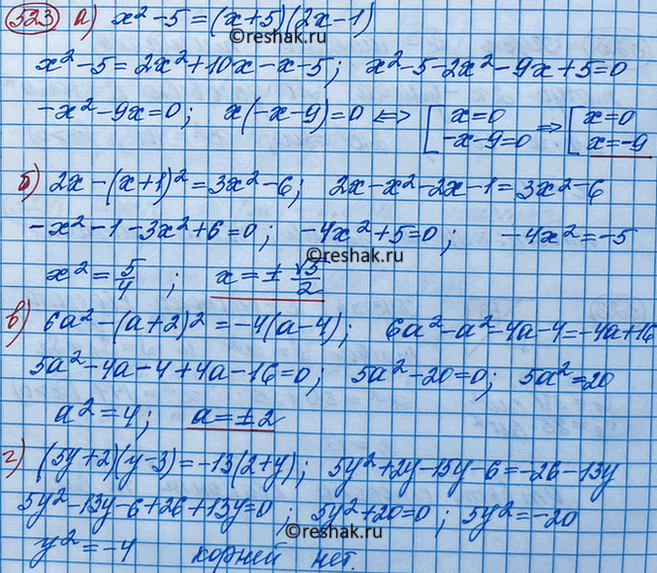 523 а) x² - 5 = (x+5)(2x-1)
©reshak.ru
x² - 5 = 2x² + 10x - x - 5; x² - 5 - 2x² - 9x + 5 = 0
-x² - 9x = 0; x(-x-9) = 0 <=> [ x = 0 -x-9 = 0 => [ x = 0 x = -9
б) 2x - (x+1)² = 3x² - 6; 2x - x² - 2x - 1 = 3x² - 6
-x² - 1 - 3x² + 6 = 0; -4x² + 5 = 0; -4x² = -5
©reshak.ru
x² = 5/4; x = ± √5/2
в) 6a² - (a+2)² = -4(a-4); 6a² - a² - 4a - 4 = -4a + 16
5a² - 4a - 4 + 4a - 16 = 0; 5a² - 20 = 0; 5a² = 20
a² = 4; a = ± 2
г) (5y+2)(y-3) = -13(2+y); 5y² + 2y - 15y - 6 = -26 - 13y
5y² - 13y - 6 + 26 + 13y = 0; 5y² + 20 = 0; 5y² = -20
©reshak.ru
y² = -4 корней нет.